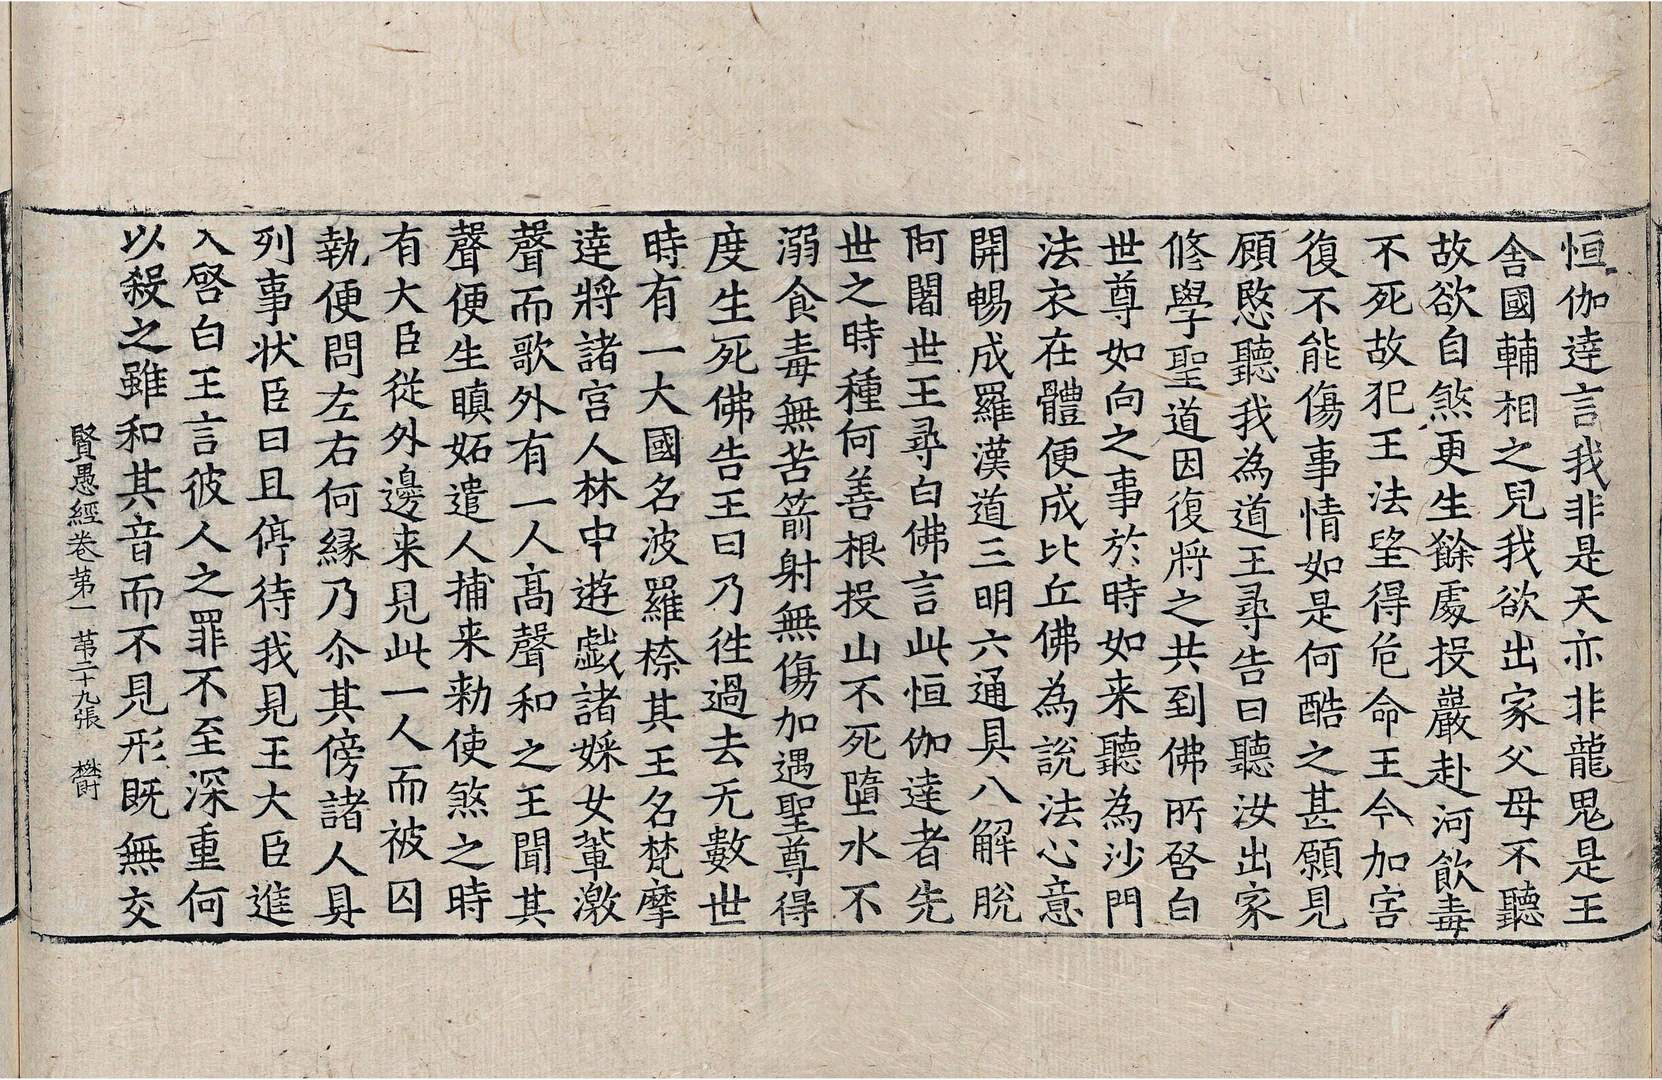 恒伽達言我非是天亦非龍鬼是王
舎國輔相之兒我欲出家父母不聽
故欲自煞更生餘處投巖赴河飲毒
不死故犯王法望得危命王今加害
復不能傷事情如是何酷之甚願見
顧愍聽我為道王尋告曰聽汝出家
修學聖道因復將之共到佛所啓白
世尊如向之事於時如来聽為沙門
法衣在體便成比丘佛為說法心意
開暢成羅漢道三明六通具八解脫
阿闍世王尋白佛言此恒伽達者先
世之時種何善根投山不死墮水不
溺食毒無苦箭射無傷加遇聖尊得
度生死佛告王曰乃徃過去无數世
時有一大國名波羅㮈其王名梵摩
達將諸宮人林中遊戲諸婇女輩激
聲而歌外有一人高聲和之王聞其
聲便生瞋妬遣人捕来勑使煞之時
有大臣從外邊来見此一人而被囚
執便問左右何縁乃尒其傍諸人具
列事状臣曰且停待我見王大臣進
入啓白王言彼人之罪不至深重何
以殺之雖和其音而不見形既無交
賢愚經卷第一　第二十九張　欝